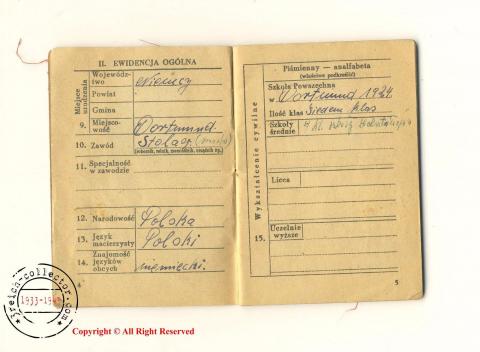 II. EWIDENCJA OGÓLNA
Miejsce urodzenia
Województwo Niemcy
Powiat
Gmina
9. Miejscowość Dortmund
10. Zawód Stolarz
(robotnik, rolnik, rzemieślnik, urzędnik itp.)
11. Specjalność
w zawodzie
12. Narodowość Polska
13. Język
macierzysty Polski
14. Znajomość
języków
obcych niemiecki.
4
Piśmienny — analfabeta
(właściwe podkreślić)
Wykształcenie cywilne
Szkoła Powszechna
w Dortmund 1924
Ilość klas Siedem klas
Szkoły
średnie
Licea
15. Uczelnie
wyższe
5
3reich-collector.com
1933-19
Copyright © All Right Reserved